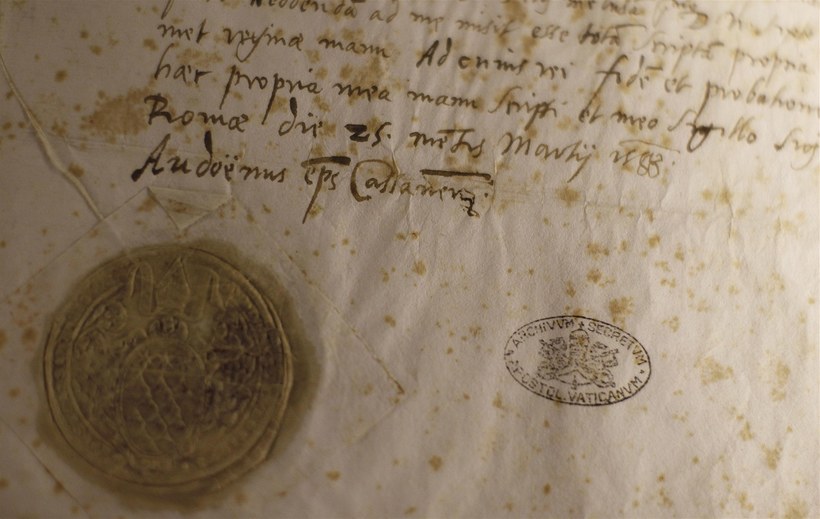 Reddenda ad me misit esse totā scriptā propria
met reginæ manu Ad cuius rei fidē et probatione
hæc propria mea manu scripsi et meo sigillo
Romæ die 25. mēsis Martij 1588.
Audoënus ep̄s Cassanen̄
ARCHIVVM SECRETVM
APOSTOL. VATICANVM